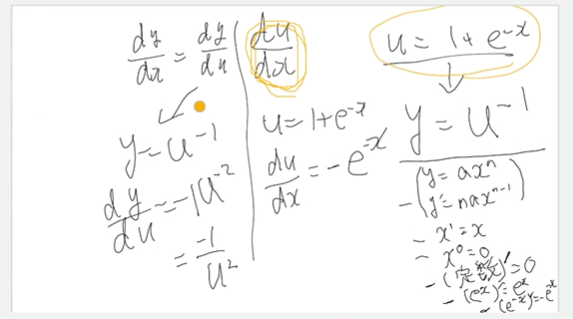 dy/dx = dy/du | du/dx
y = u⁻¹
dy/du = -1u⁻²
= -1/u²
u = 1+e⁻ˣ
du/dx = -e⁻ˣ
u = 1+e⁻ˣ
y = u⁻¹
- (y = axⁿ
y' = naxⁿ⁻¹)
- x¹ = x
- x⁰ = 0
- (定数)' = 0
- (eˣ)' = eˣ
- (e⁻ˣ)' = -e⁻ˣ